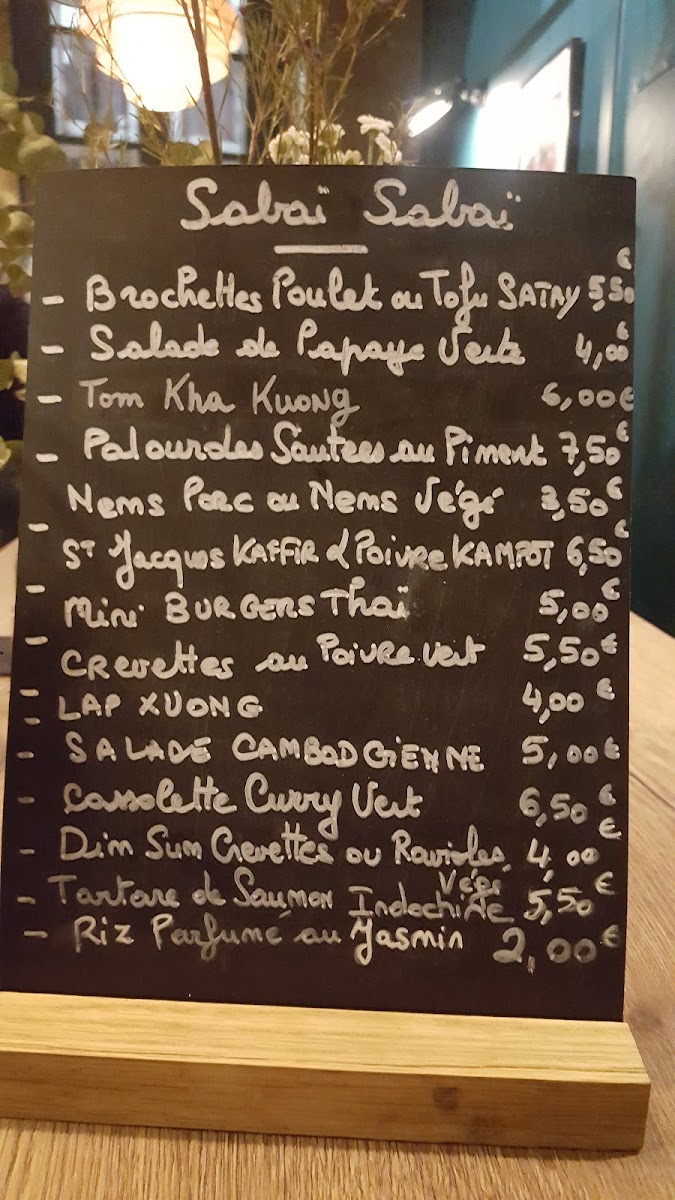 Sabaï Sabaï
- Brochettes Poulet ou Tofu SATAY 5,50€
- Salade de Papaye Verte 4,00€
- Tom Kha Kuong 6,00€
- Palourdes Sautées au Piment 7,50€
- Nems Porc ou Nems Végé 3,50€
- St Jacques KAFFIR & Poivre KAMPOT 6,50€
- Mini BURGERS Thaï 5,00€
- Crevettes au Poivre vert 5,50€
- LAP XUONG 4,00€
- SALADE CAMBODGIENNE 5,00€
- Cassolette Curry Vert 6,50€
- Dim Sum Crevettes ou Ravioles Végé 4,00€
- Tartare de Saumon Indochine 5,50€
- Riz Parfumé au Jasmin 2,00€